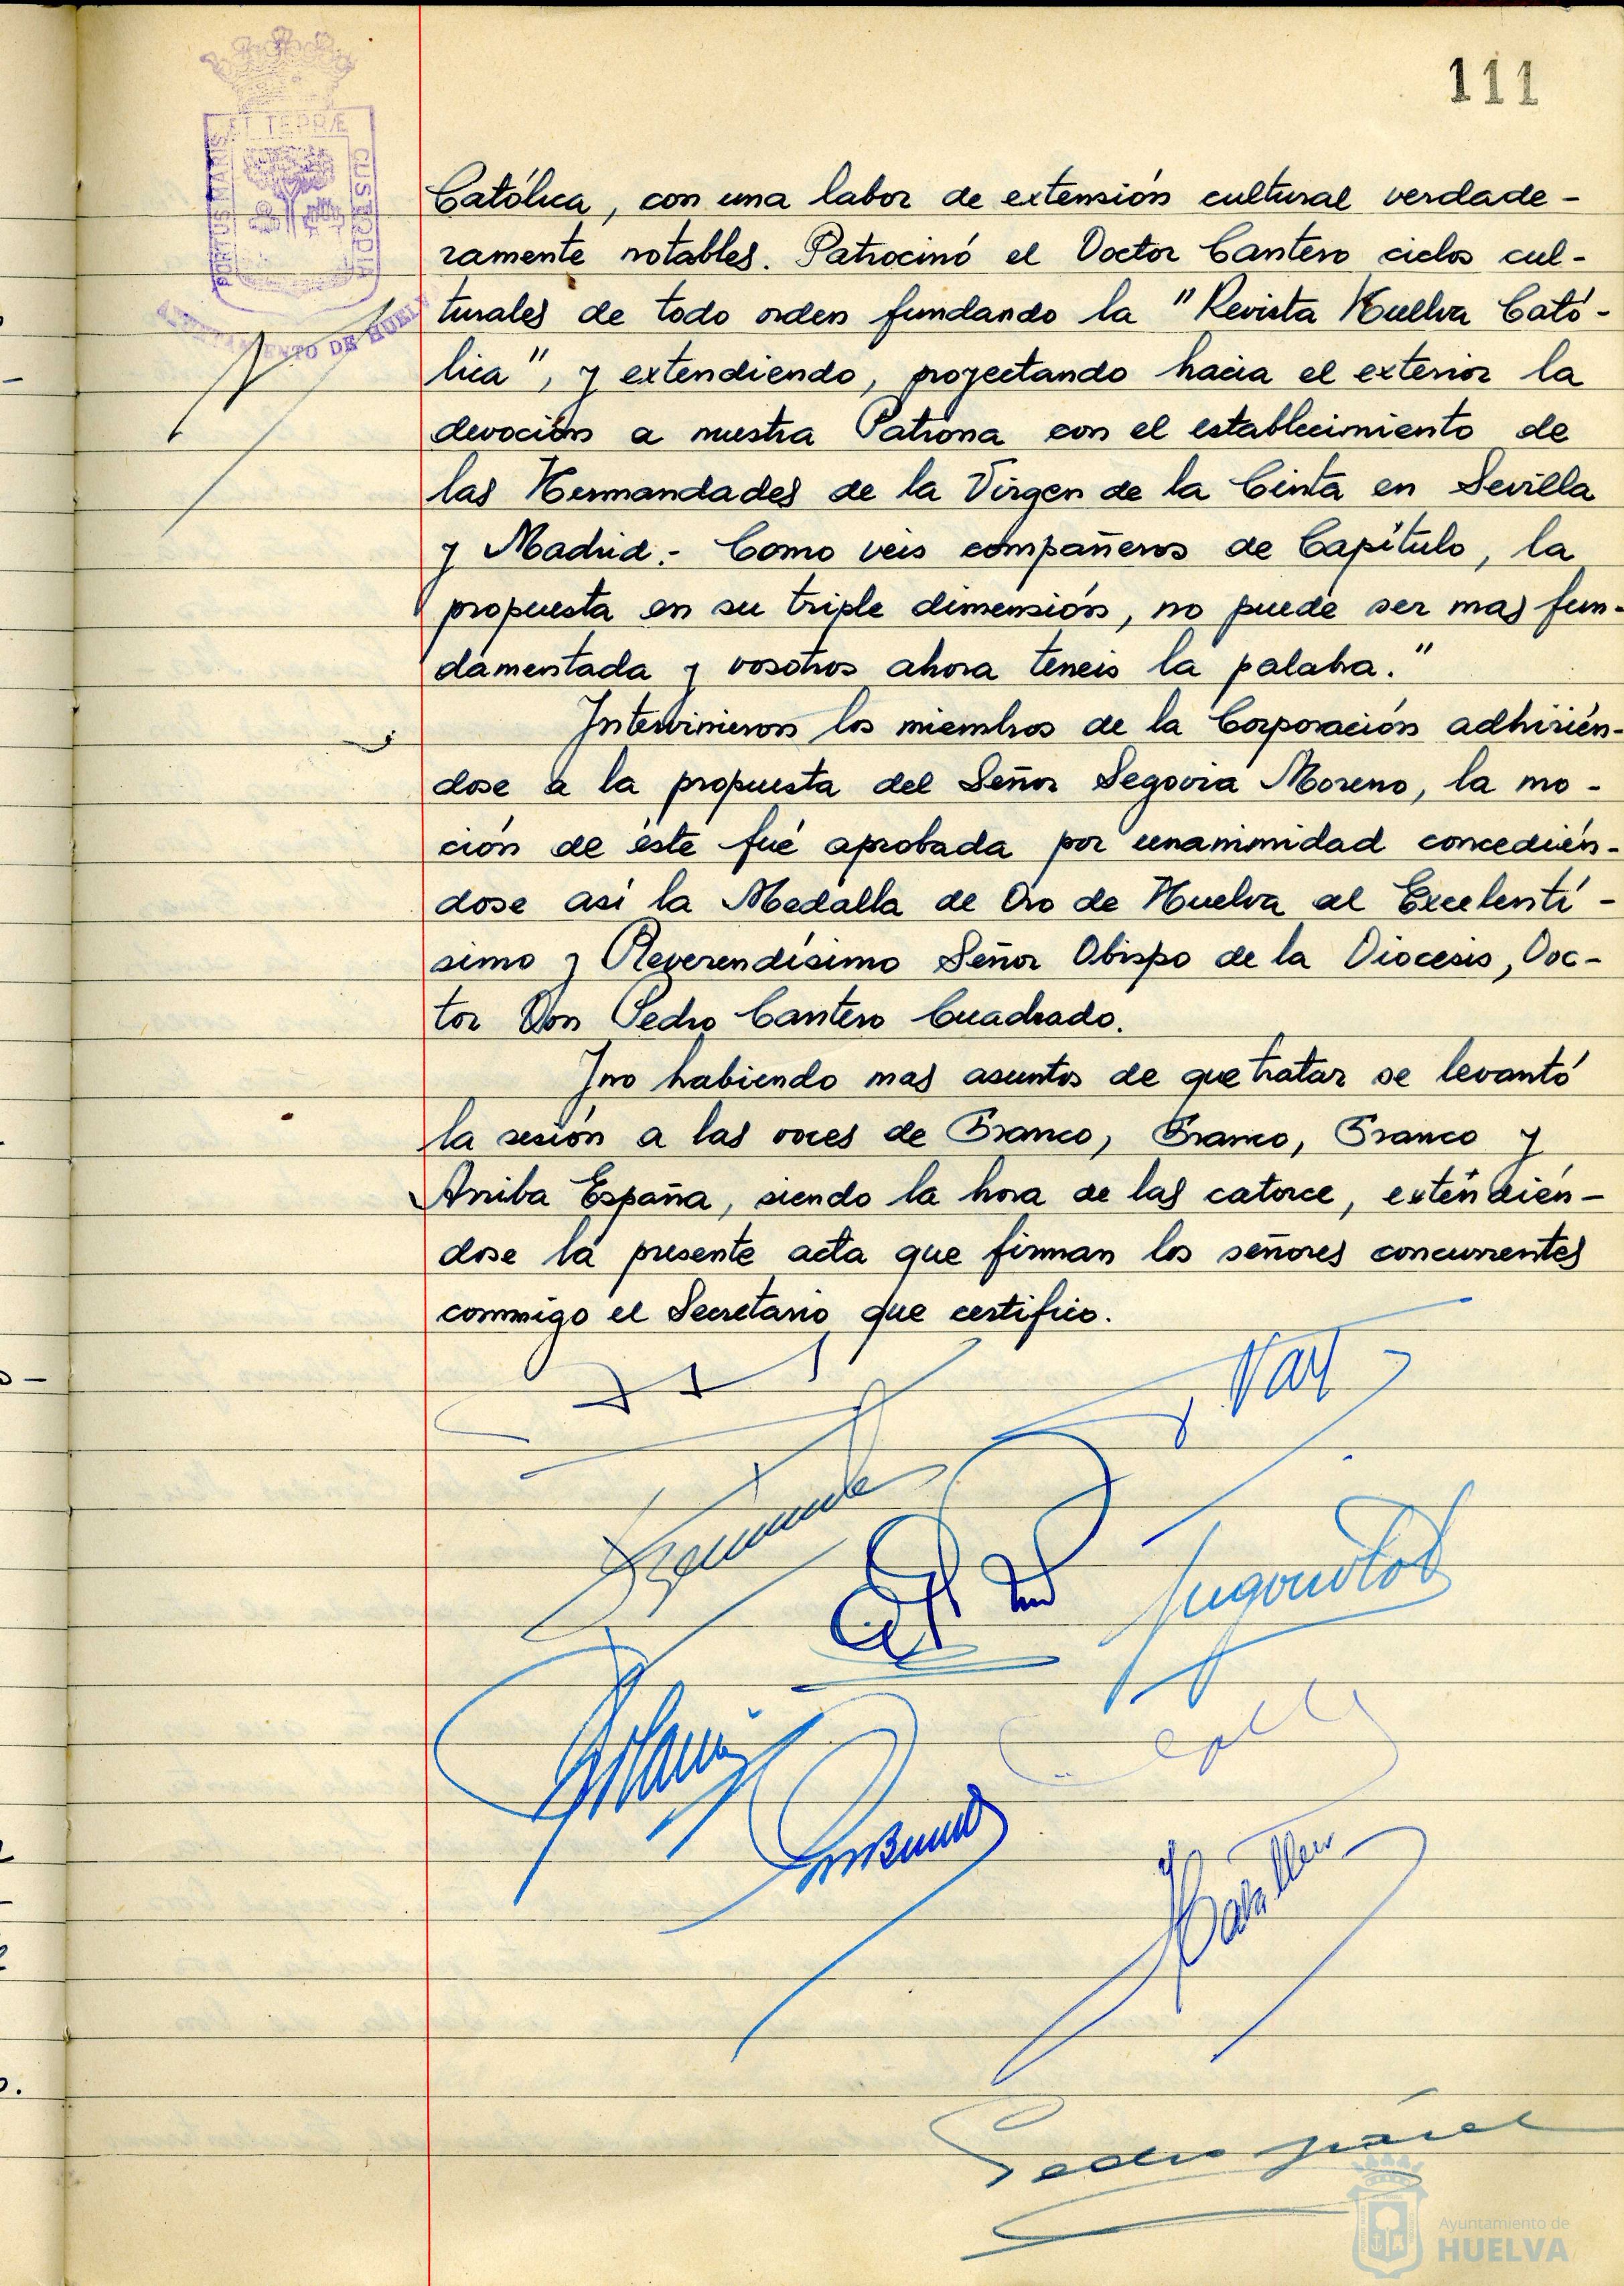 111
PORTUS MARIS
ET TERRÆ
CUSTODIA
AYUNTAMIENTO DE HUELVA
Católica, con una labor de extensión cultural verdade-
ramente notables. Patrocinó el Doctor Cantero ciclos cul-
turales de todo orden fundando la "Revista Huelva Cató-
lica", y extendiendo, proyectando hacia el exterior la
devoción a nuestra Patrona con el establecimiento de
las Hermandades de la Virgen de la Cinta en Sevilla
y Madrid.- Como veis compañeros de Capítulo, la
propuesta en su triple dimensión, no puede ser mas fun-
damentada y vosotros ahora teneis la palabra."
Intervinieron los miembros de la Corporación adhirién-
dose a la propuesta del Señor Segovia Moreno, la mo-
ción de éste fué aprobada por unanimidad concedién-
dose así la Medalla de Oro de Huelva al Excelentí-
simo y Reverendísimo Señor Obispo de la Diocesis, Doc-
tor Don Pedro Cantero Cuadrado.
Y no habiendo mas asuntos de que tratar se levantó
la sesión a las voces de Franco, Franco, Franco y
Arriba España, siendo la hora de las catorce, extendién-
dose la presente acta que firman los señores concurrentes
conmigo el Secretario que certifico.
Pedro
Ayuntamiento de
HUELVA